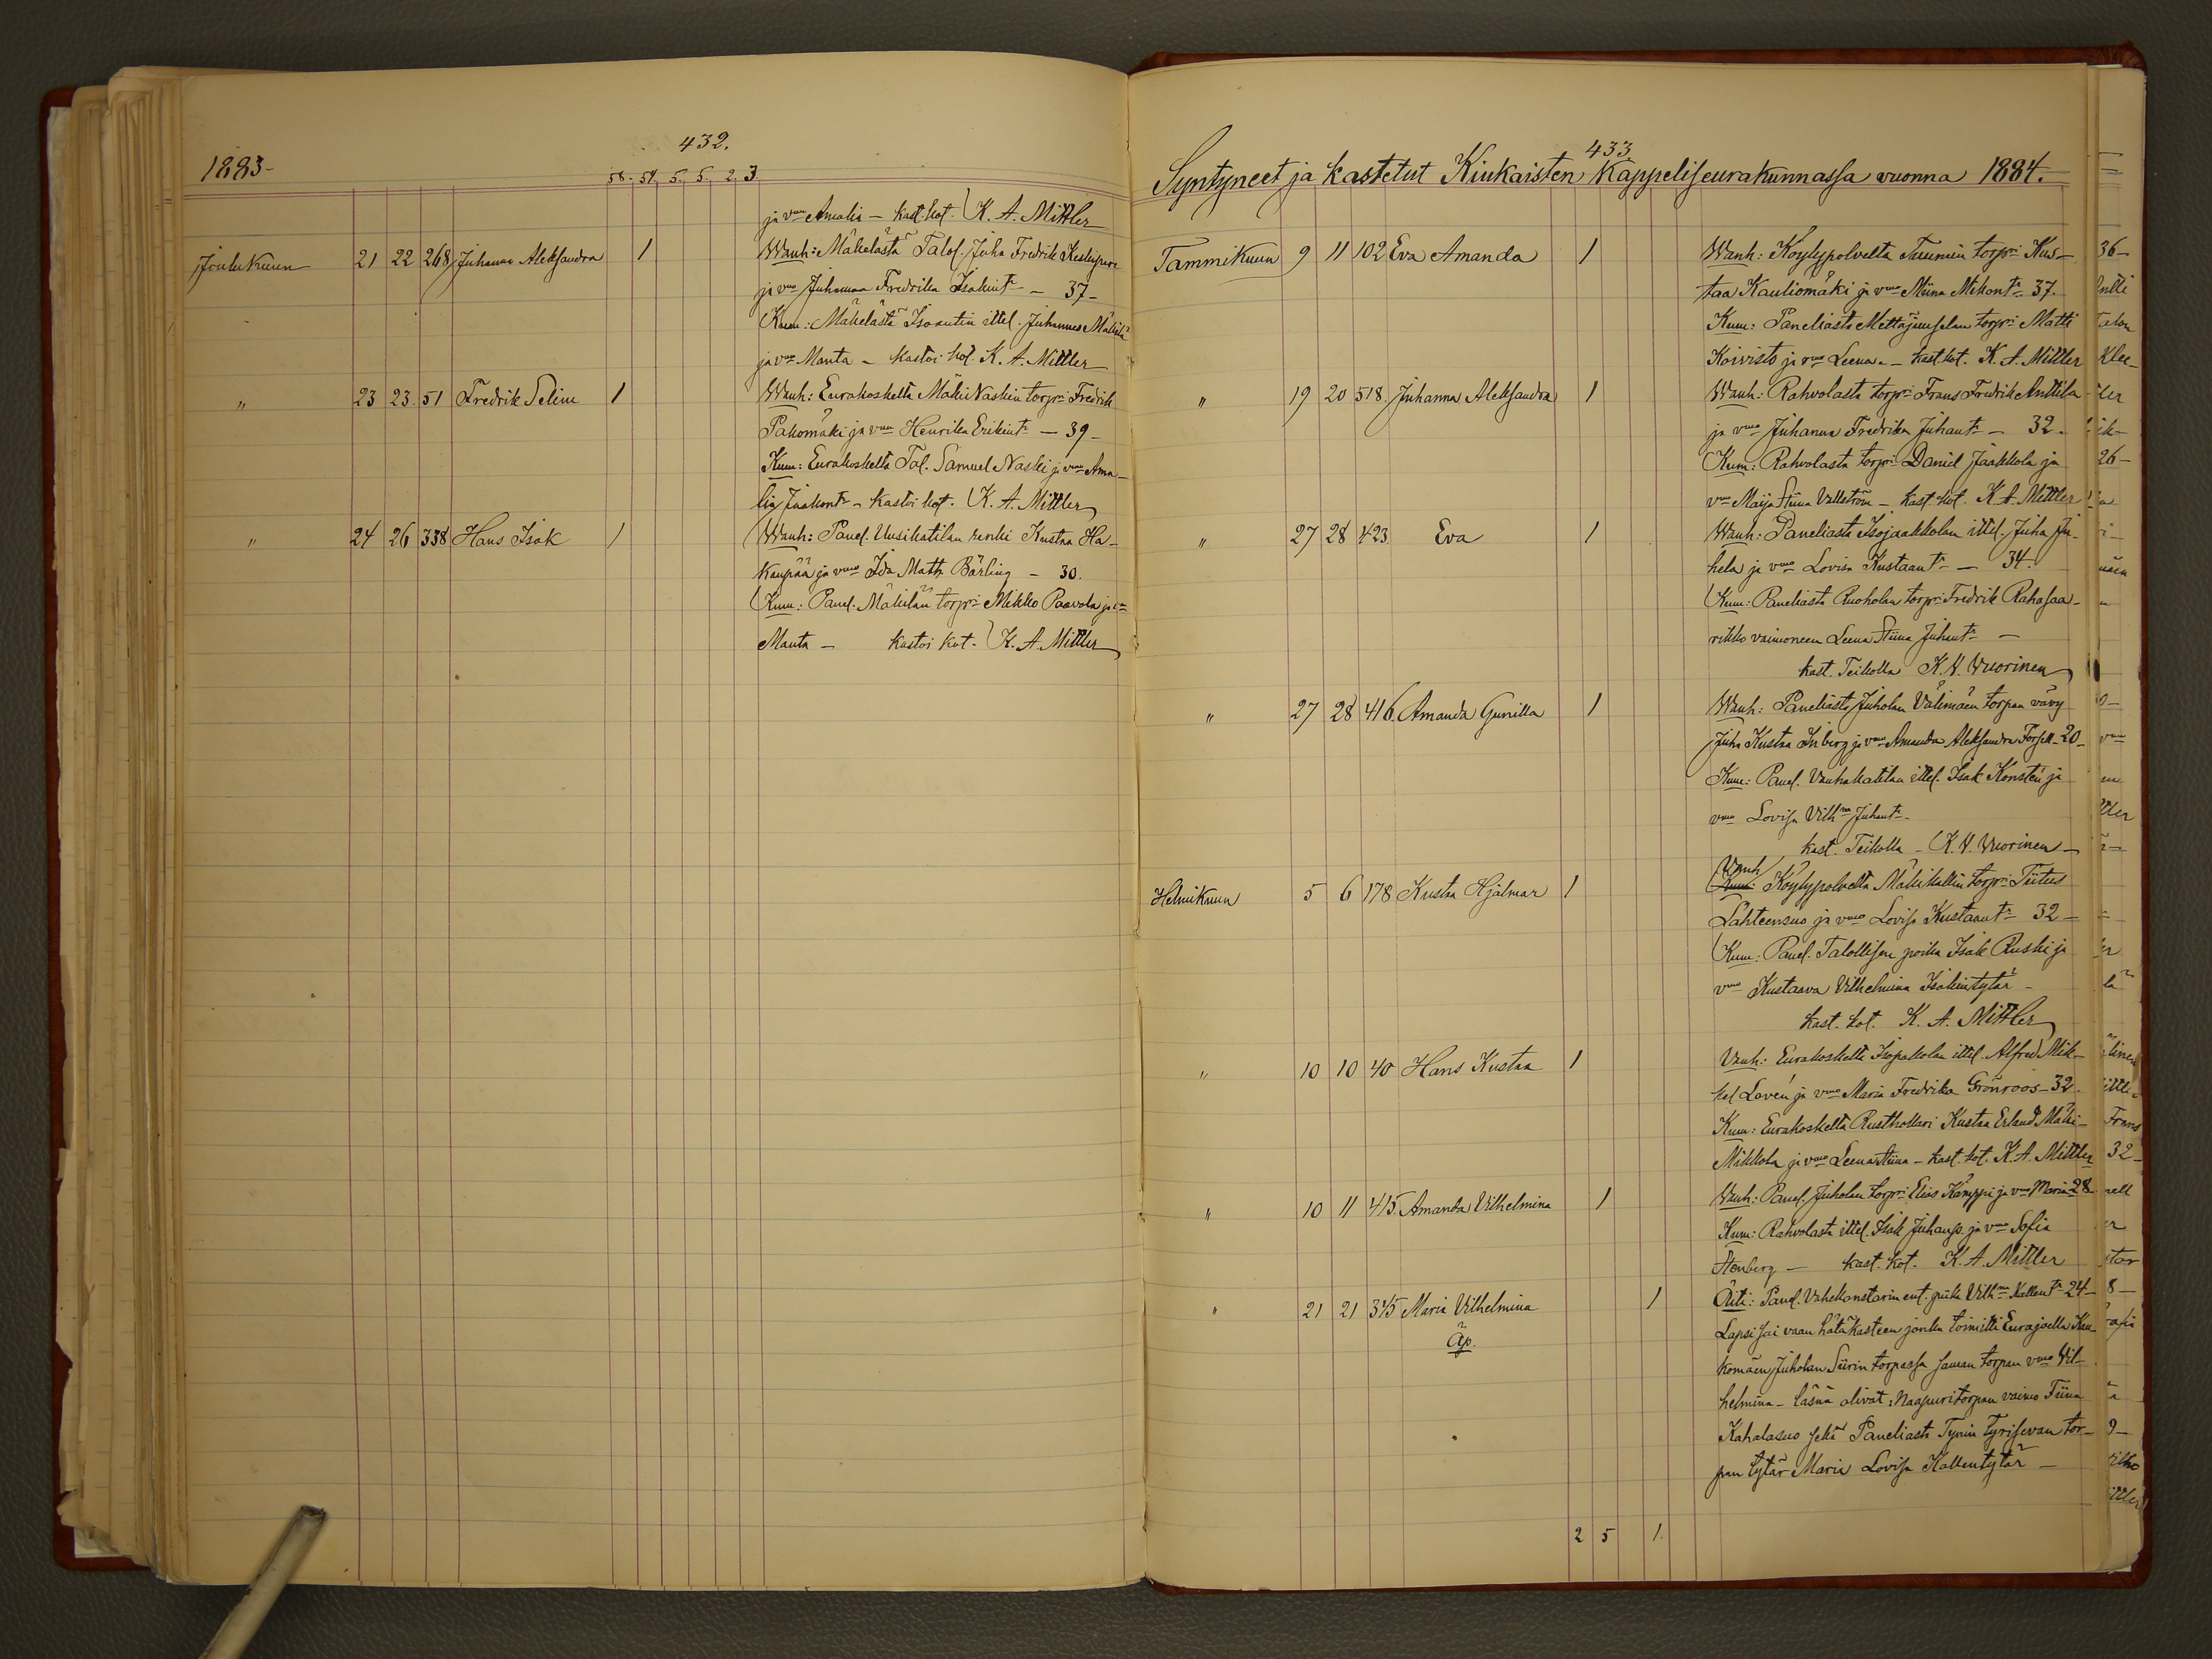 432.
1883-
58. 54. 5. 5. 2. 3.
ja vmo Amalia - kast. kot. K. A. Mittler
Joulukuun 21 22 268 Juhanna Aleksandra 1 Wanh: Mäkelästä Talol. Juha Fredrik Keskipere
ja vmo Juhanna Fredrika Isakint: - 37 -
Kum: Mäkelästä Isoautin ittel. Juhannes Mäkilä
ja vmo Manta - kastoi kot. K. A. Mittler
" 23 23. 51 Fredrik Selim 1 Wanh: Eurakoskelta Mäki Naskin torpri Fredrik
Pakomäki ja vmo Henrika Erikint: - 39 -
Kum: Eurakoskelta Tal. Samuel Naski ja vmo Ama-
lia Jaakont: - kastoi kot. K. A. Mittler
" 24 26 338 Hans Isak 1 Wanh: Panel. Uusikatilan renki Kustaa Ha-
kanpää ja vmo Ida Math. Bärling - 30.
Kum: Panel. Mäkilän torpri Mikko Paavola ja vmo
Manta - kastoi kot. K. A. Mittler
433
Syntyneet ja kastetut Kiukaisten Kappeliseurakunnassa vuonna 1884.
Tammikuun 9 11 102 Eva Amanda 1 Wanh: Köylypolvelta Tuunin torpri Kus-
taa Kauliomäki ja vmo Miina Mikont: 37.
Kum: Paneliasta Mettäjuuselan torpri Matti
Koivisto ja vmo Leena. - kast. kot. K. A. Mittler
" 19 20 518. Juhanna Aleksandra 1 Wanh: Rahvolasta torpri Frans Fredrik Anttila
ja vmo Juhanna Fredrika Juhant: - 32.
Kum: Rahvolasta torpri Daniel Jaakkola ja
vmo Maija Stiina Vallström - kast. kot. K. A. Mittler
" 27 28 423. Eva 1 Wanh: Paneliasta Isojaakkolan ittel. Juha Ju-
hela ja vmo Lovisa Kustaant: - 34.
Kum: Paneliasta Ruoholan torpri Fredrik Rahasaa-
rikko vaimoneen Leena Stiina Juhant: -
kast. Teikolla K. V. Wuorinen
" 27 28 416. Amanda Gunilla 1 Wanh: Paneliasta Juholan Välimäen torpan vävy
Juha Kustaa Inberg ja vmo Amanda Aleksandra Forsell - 20 -
Kum: Panel. Vanhakatilan ittel. Isak Konstén ja
vmo Lovisa Vilhna Juhant: -
kast. Teikolla - K. V. Wuorinen -
Vanh
Helmikuun 5 6 178 Kustaa Hjalmar 1 Kum: Köylypolvelta Mäkikallin torpri Tiitus
Lähteensuo ja vmo Lovisa Kustaant: 32 -
Kum: Panel. Talollisen poika Isak Ruski ja
vmo Kustaava Vilhelmina Isakintytär -
kast. kot. K. A. Mittler
" 10 10 40 Hans Kustaa 1 Vanh: Eurakoskelta Isopakolan ittel. Alfred Mik-
kel Lovén ja vmo Maria Fredrika Grönroos - 32.
Kum: Eurakoskelta Rusthollari Kustaa Erland Mäki-
Mikkola ja vmo Leena Stiina - kast. kot. K. A. Mittler
" 10 11 415. Amanda Vilhelmina 1 Wanh: Panel. Juholan torpri Elias Kamppi ja vmo Maria 28
Kum: Rahvolasta ittel. Isak Juhanp. ja vmo Sofia
Stenberg - kast. kot. K. A. Mittler
" 21 21 345 Maria Vilhelmina 1 Äiti: Panel. Vähekonstarin ent. piika Vilhna Kallent: 24 -
Äp. Lapsi sai vaan hätäkasteen jonka toimitti Eurajoella Kau-
komäen Juholan Siirin torpassa saman torpan vmo Vil-
helmina - läsnä olivat: Naapuritorpan vaimo Tiina
Kahalasuo sekä Paneliasta Tynin Tyrisevan tor-
pan tytär Maria Lovisa Kallentytär -
2 5 1.